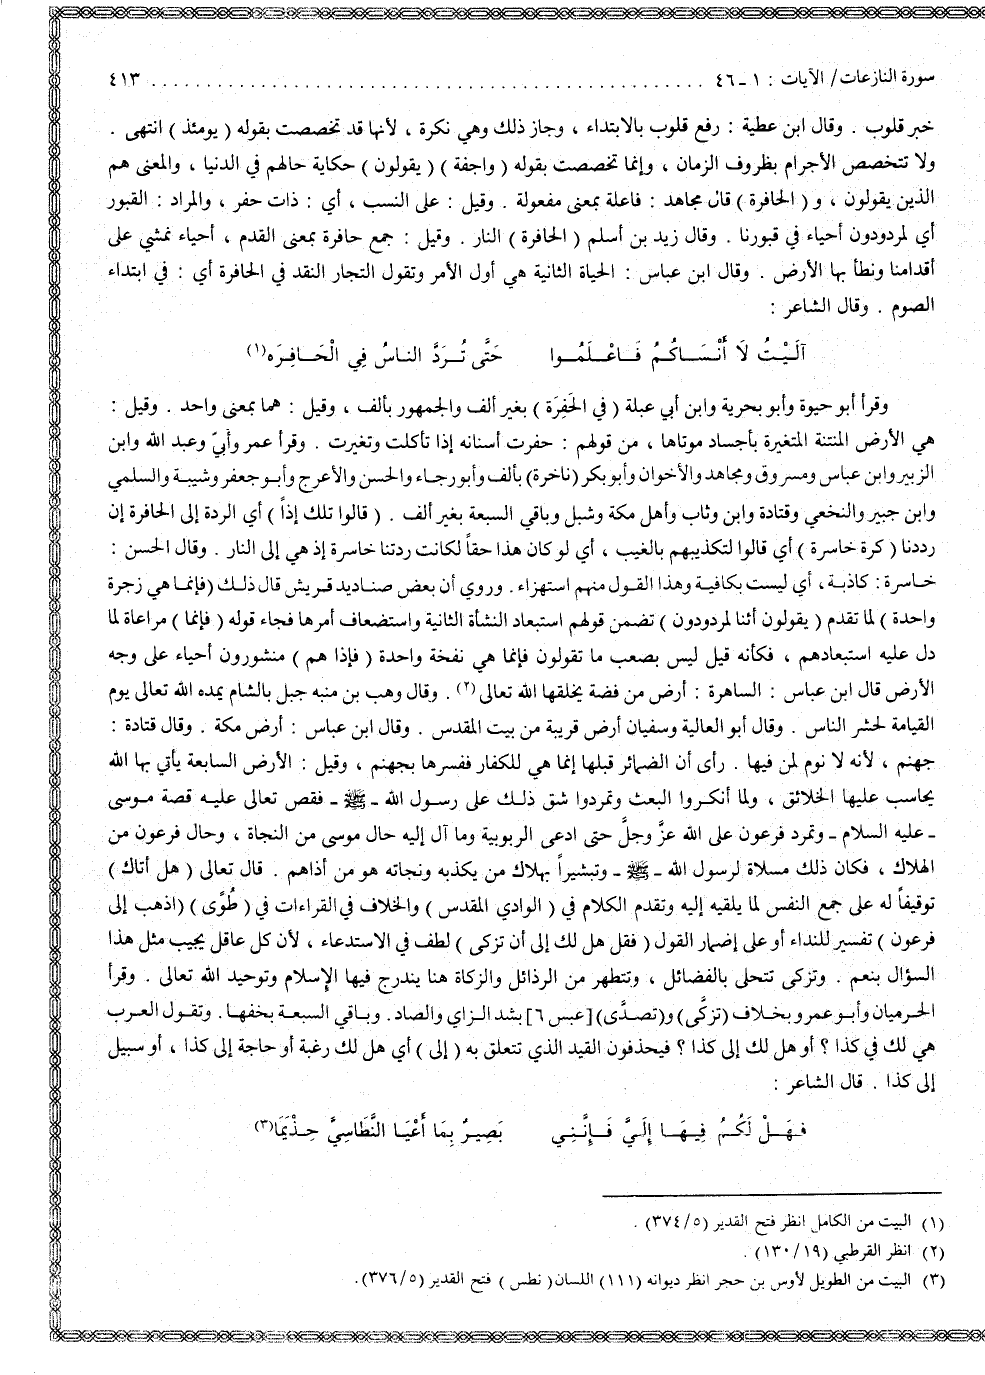 سورة النازعات/ الآيات : ١ ـ ٤٦ ............................................ ٤١٣
خبر قلوب . وقال ابن عطية : رفع قلوب بالابتداء ، وجاز ذلك وهي نكرة ، لأنها قد تخصصت بقوله ( يومئذ ) انتهى .
ولا تتخصص الأجرام بظروف الزمان ، وإنما تخصصت بقوله ( واجفة ) ( يقولون ) حكاية حالهم في الدنيا ، والمعنى هم
الذين يقولون ، و ( الحافرة ) قال مجاهد : فاعلة بمعنى مفعولة . وقيل : على النسب ، أي : ذات حفر ، والمراد : القبور
أي لمردودون أحياء في قبورنا . وقال زيد بن أسلم ( الحافرة ) النار . وقيل : جمع حافرة بمعنى القدم ، أحياء نمشي على
أقدامنا ونطأ بها الأرض . وقال ابن عباس : الحياة الثانية هي أول الأمر وتقول التجار النقد في الحافرة أي : في ابتداء
الصوم . وقال الشاعر :
آلَيْتُ لَا أَنْسَاكُمُ فَاعْلَمُوا حَتَّى تُرَدَّ النَاسُ فِي الْحَافِرَه(١)
وقرأ أبو حيوة وأبو بحرية وابن أبي عبلة ( في الحَفِرَة ) بغير ألف والجمهور بألف ، وقيل : هما بمعنى واحد . وقيل :
هي الأرض المنتنة المتغيرة بأجساد موتاها ، من قولهم : حفرت أسنانه إذا تأكلت وتغيرت . وقرأ عمر وأبيّ وعبد الله وابن
الزبير وابن عباس ومسروق ومجاهد والأخوان وأبو بكر (ناخرة) بألف وأبو رجاء والحسن والأعرج وأبو جعفر وشيبة والسلمي
وابن جبير والنخعي وقتادة وابن وثاب وأهل مكة وشبل وباقي السبعة بغير ألف . ( قالوا تلك إذاً ) أي الردة إلى الحافرة إن
رددنا ( كرة خاسرة ) أي قالوا لتكذيبهم بالغيب ، أي لو كان هذا حقاً لكانت ردتنا خاسرة إذ هي إلى النار . وقال الحسن :
خاسرة : كاذبة ، أي ليست بكافية وهذا القول منهم استهزاء . وروي أن بعض صناديد قريش قال ذلك (فإنما هي زجرة
واحدة ) لما تقدم ( يقولون أئنا لمردودون ) تضمن قولهم استبعاد النشأة الثانية واستضعاف أمرها فجاء قوله ( فإنما ) مراعاة لما
دل عليه استبعادهم ، فكأنه قيل ليس بصعب ما تقولون فإنما هي نفخة واحدة ( فإذا هم ) منشورون أحياء على وجه
الأرض قال ابن عباس : الساهرة : أرض من فضة يخلقها الله تعالى(٢) . وقال وهب بن منبه جبل بالشام يمده الله تعالى يوم
القيامة لحشر الناس . وقال أبو العالية وسفيان أرض قريبة من بيت المقدس . وقال ابن عباس : أرض مكة . وقال قتادة :
جهنم ، لأنه لا نوم لمن فيها . رأى أن الضمائر قبلها إنما هي للكفار ففسرها بجهنم ، وقيل : الأرض السابعة يأتي بها الله
يحاسب عليها الخلائق ، ولما أنكروا البعث وتمردوا شق ذلك على رسول الله ـ ﷺ ـ فقص تعالى عليه قصة موسى
ـ عليه السلام ـ وتمرد فرعون على الله عزَّ وجلَّ حتى ادعى الربوبية وما آل إليه حال موسى من النجاة ، وحال فرعون من
الهلاك ، فكان ذلك مسلاة لرسول الله ـ ﷺ ـ وتبشيراً بهلاك من يكذبه ونجاته هو من أذاهم . قال تعالى ( هل أتاك )
توقيفاً له على جمع النفس لما يلقيه إليه وتقدم الكلام في ( الوادي المقدس ) والخلاف في القراءات في ( طُوًى ) (اذهب إلى
فرعون ) تفسير للنداء أو على إضمار القول ( فقل هل لك إلى أن تزكى ) لطف في الاستدعاء ، لأن كل عاقل يجيب مثل هذا
السؤال بنعم . وتزكى تتحلى بالفضائل ، وتتطهر من الرذائل والزكاة هنا يندرج فيها الإسلام وتوحيد الله تعالى . وقرأ
الحرميان وأبو عمرو بخلاف (تزكَّى) و(تصدَّى) [عبس ٦] بشد الزاي والصاد . وباقي السبعة بخفها . وتقول العرب
هي لك في كذا ؟ أو هل لك إلى كذا ؟ فيحذفون القيد الذي تتعلق به ( إلى ) أي هل لك رغبة أو حاجة إلى كذا ، أو سبيل
إلى كذا . قال الشاعر :
فَهَلْ لَكُمُ فِيهَا إِلَيَّ فَإِنَّنِي بَصِيرٌ بِمَا أَعْيَا النَّطَاسِيَّ حِذْيَمَا(٣)
(١) البيت من الكامل انظر فتح القدير (٥/ ٣٧٤) .
(٢) انظر القرطبي (١٩/ ١٣٠) .
(٣) البيت من الطويل لأوس بن حجر انظر ديوانه (١١١) اللسان( نطس ) فتح القدير (٥/ ٣٧٦).